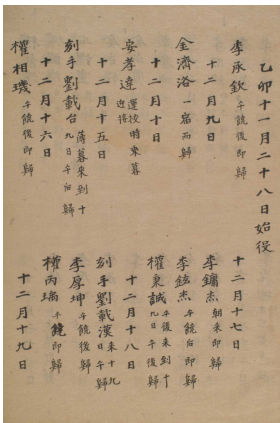 乙卯十一月二十八日始役
李承欽 午饒後即歸
十二月九日
金濟洛 一宿而歸
十二月十日
安孝達 運役時來暮
十二月十五日
刻手劉載台 薄暮來到十
九日午后歸
十二月十六日
權相璣 午饒後即歸
十二月十七日
李鏞杰 朝來即歸
李鉉杰 午饒后即歸
權秉誠 午後來到十
九日午後歸
十二月十八日
刻手劉載漢 來十九
日午歸
李厚坤 午饒後歸
權丙瑀 午饒即歸
十二月十九日